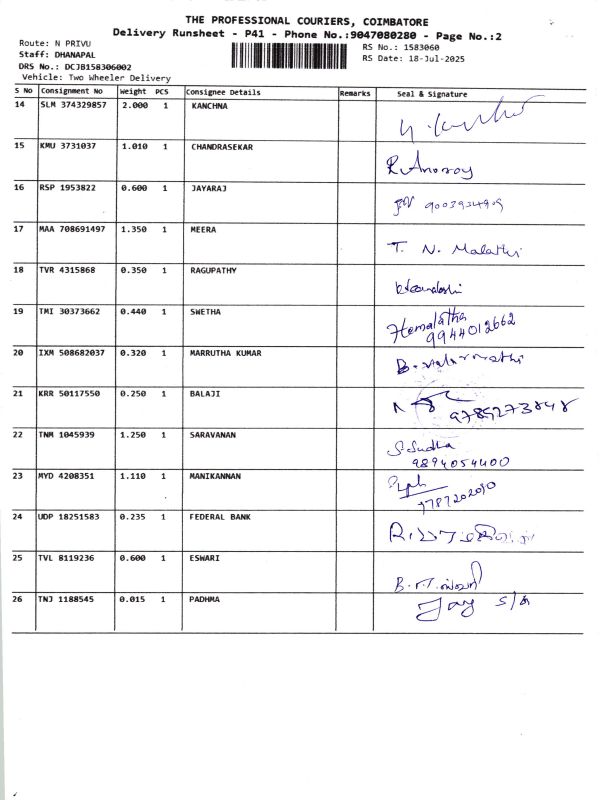 THE PROFESSIONAL COURIERS, COIMBATORE
Delivery Runsheet - P41 - Phone No.:9047080280 - Page No.:2
Route: N PRIVU
Staff: DHANAPAL
DRS No.: DCJB158306002
Vehicle: Two Wheeler Delivery
RS No.: 1583060
RS Date: 18-Jul-2025
S No Consignment No Weight PCS Consignee Details Remarks Seal & Signature
14 SLM 374329857 2.000 1 KANCHNA
15 KMU 3731037 1.010 1 CHANDRASEKAR
16 RSP 1953822 0.600 1 JAYARAJ
9003934909
17 MAA 708691497 1.350 1 MEERA
T. N. Malathi
18 TVR 4315868 0.350 1 RAGUPATHY
19 TMI 30373662 0.440 1 SWETHA
Hemalatha
9944012662
20 IXM 508682037 0.320 1 MARRUTHA KUMAR
21 KRR 50117550 0.250 1 BALAJI
9789273848
22 TNM 1045939 1.250 1 SARAVANAN
S. Sudha
9894054400
23 MYD 4208351 1.110 1 MANIKANNAN
9787202090
24 UDP 18251583 0.235 1 FEDERAL BANK
25 TVL 8119236 0.600 1 ESWARI
26 TNJ 1188545 0.015 1 PADHMA
Jay s/o